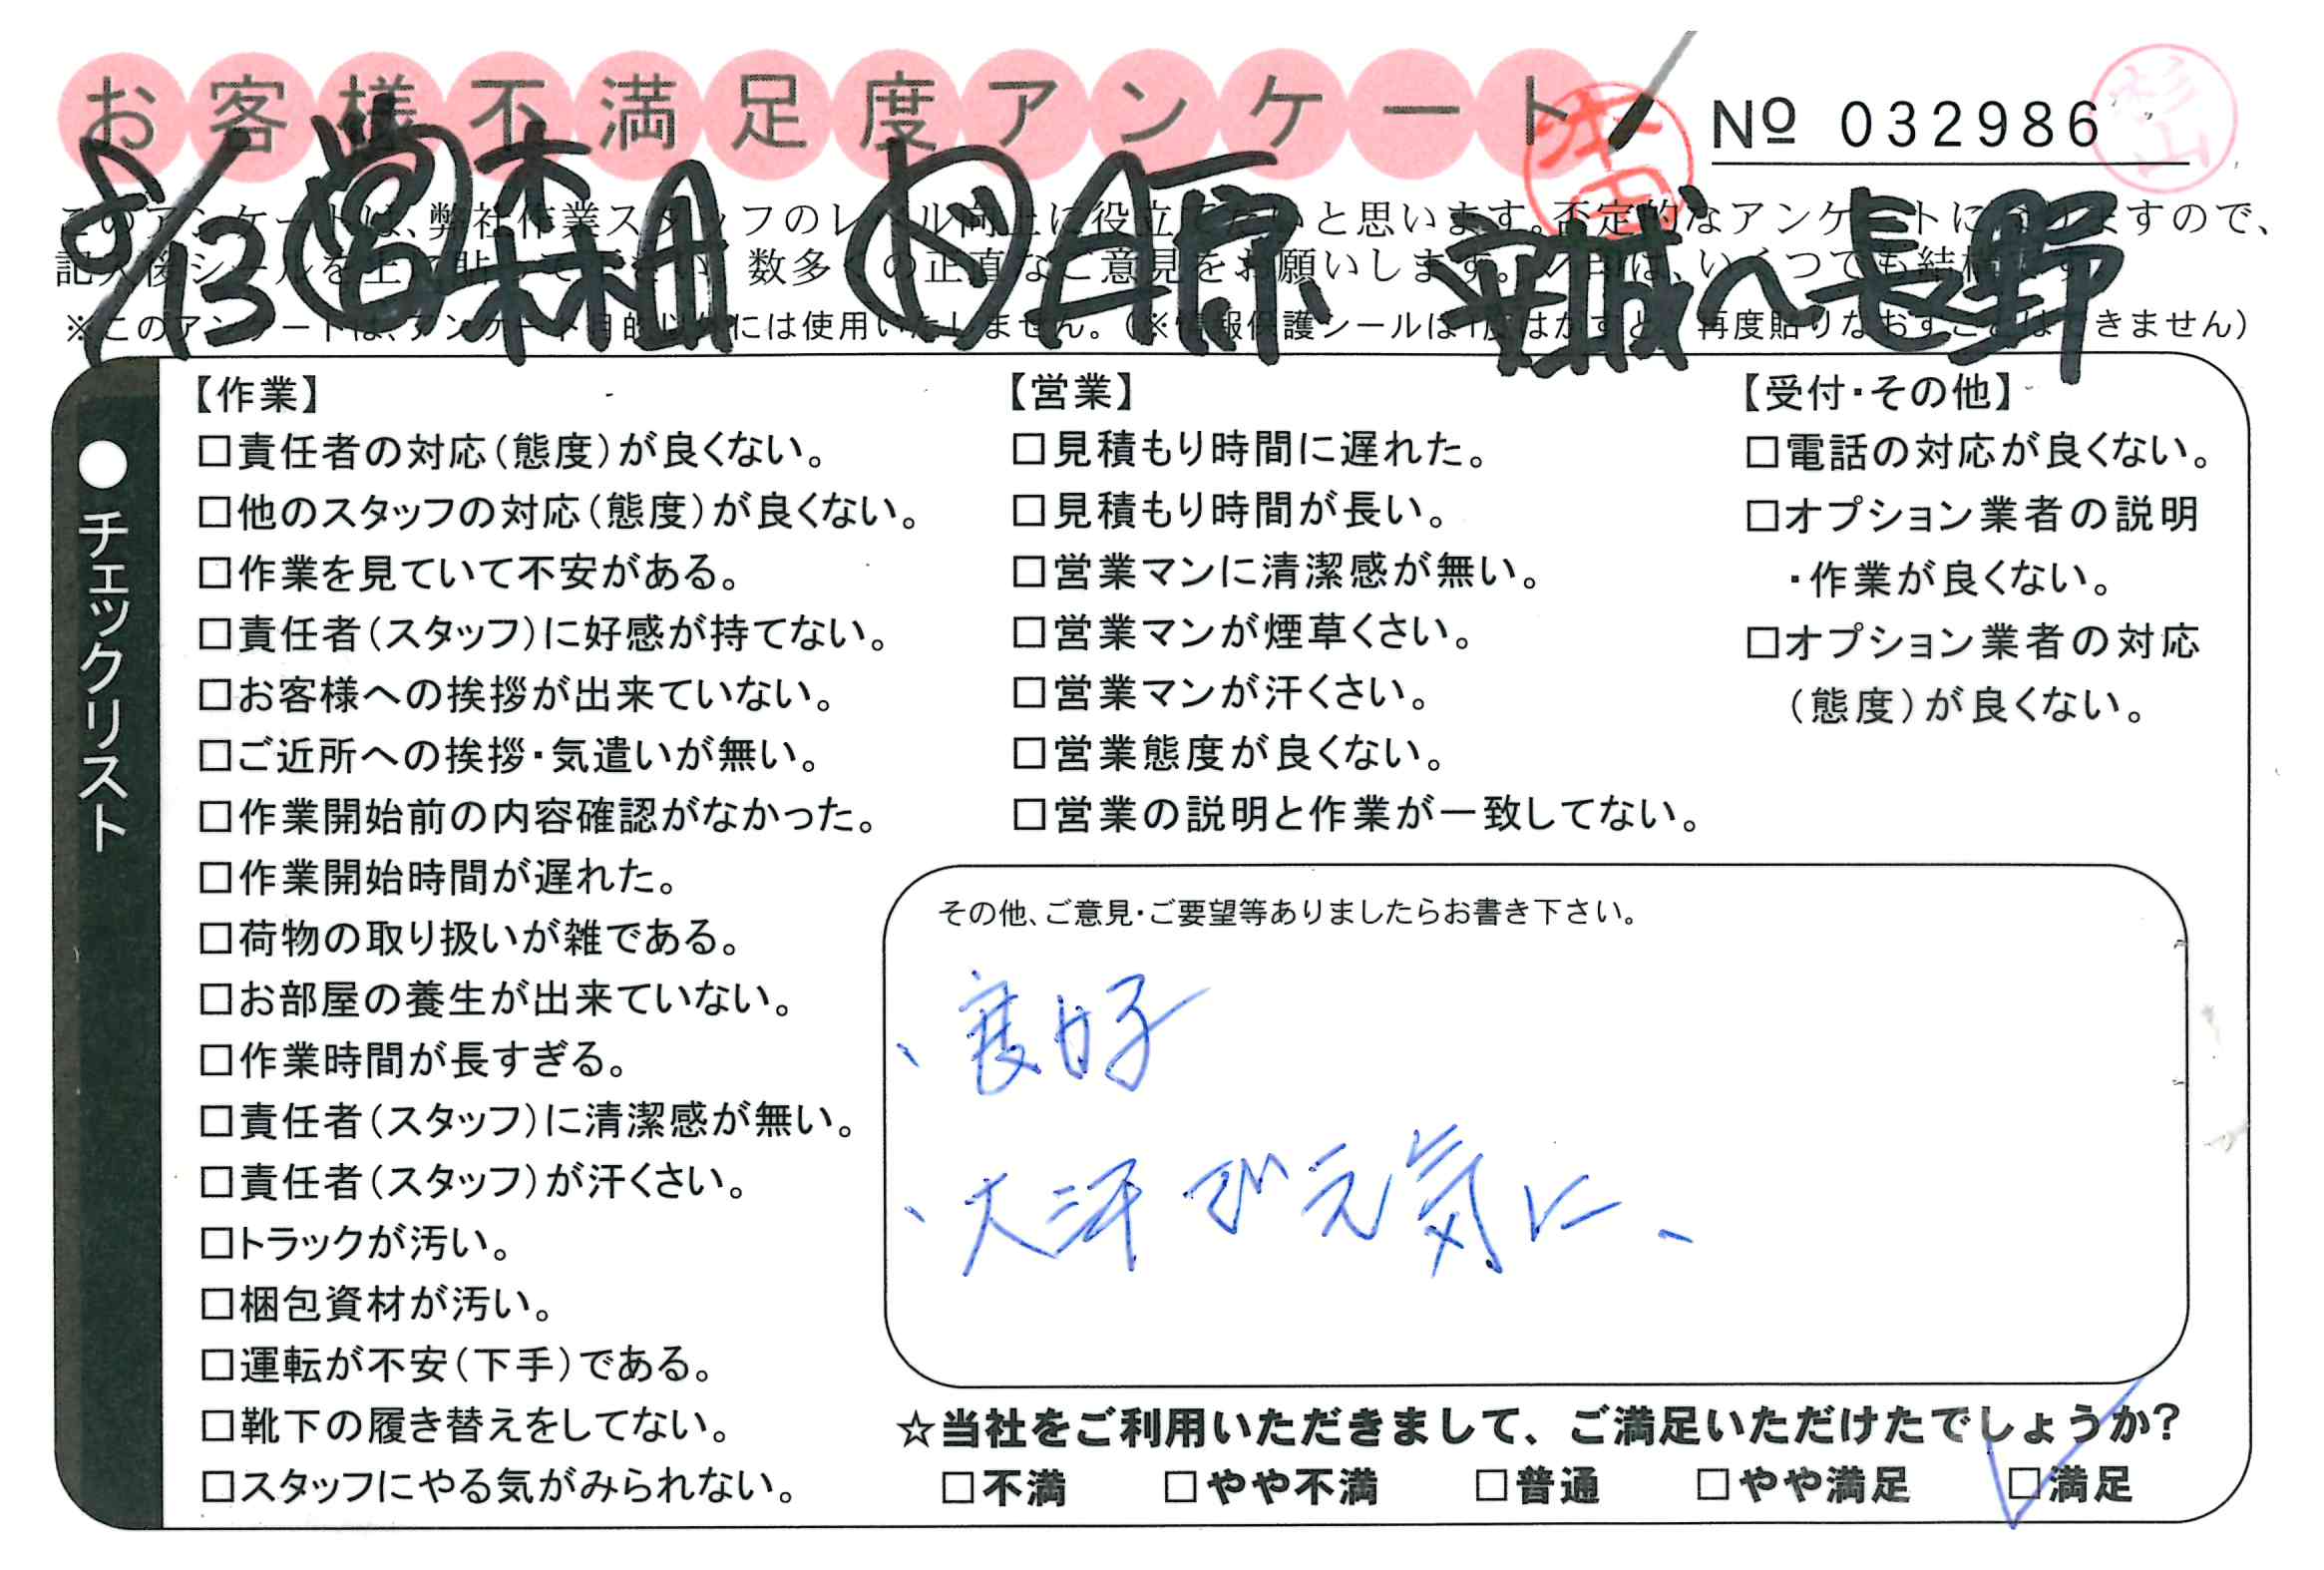 お客様不満足度アンケート
№ 032986
8/13 営 森 安城へ長野
このアンケートは、弊社作業スタッフのレベル向上に役立てたいと思います。否定的なアンケートになりますので、
記入後シールを上に貼って下さい。数多くの正直なご意見をお願いします。いくつでも結構です。
※このアンケートは、アンケート目的以外には使用いたしません。(※情報保護シールは1度はがすと、再度貼りなおすことはできません)
●チェックリスト
【作業】
□責任者の対応(態度)が良くない。
□他のスタッフの対応(態度)が良くない。
□作業を見ていて不安がある。
□責任者(スタッフ)に好感が持てない。
□お客様への挨拶が出来ていない。
□ご近所への挨拶・気遣いが無い。
□作業開始前の内容確認がなかった。
□作業開始時間が遅れた。
□荷物の取り扱いが雑である。
□お部屋の養生が出来ていない。
□作業時間が長すぎる。
□責任者(スタッフ)に清潔感が無い。
□責任者(スタッフ)が汗くさい。
□トラックが汚い。
□梱包資材が汚い。
□運転が不安(下手)である。
□靴下の履き替えをしてない。
□スタッフにやる気がみられない。
【営業】
□見積もり時間に遅れた。
□見積もり時間が長い。
□営業マンに清潔感が無い。
□営業マンが煙草くさい。
□営業マンが汗くさい。
□営業態度が良くない。
□営業の説明と作業が一致してない。
【受付・その他】
□電話の対応が良くない。
□オプション業者の説明
・作業が良くない。
□オプション業者の対応
(態度)が良くない。
その他、ご意見・ご要望等ありましたらお書き下さい。
、良好
、大汗が元気に、
☆当社をご利用いただきまして、ご満足いただけたでしょうか?
□不満 □やや不満 □普通 □やや満足 □満足